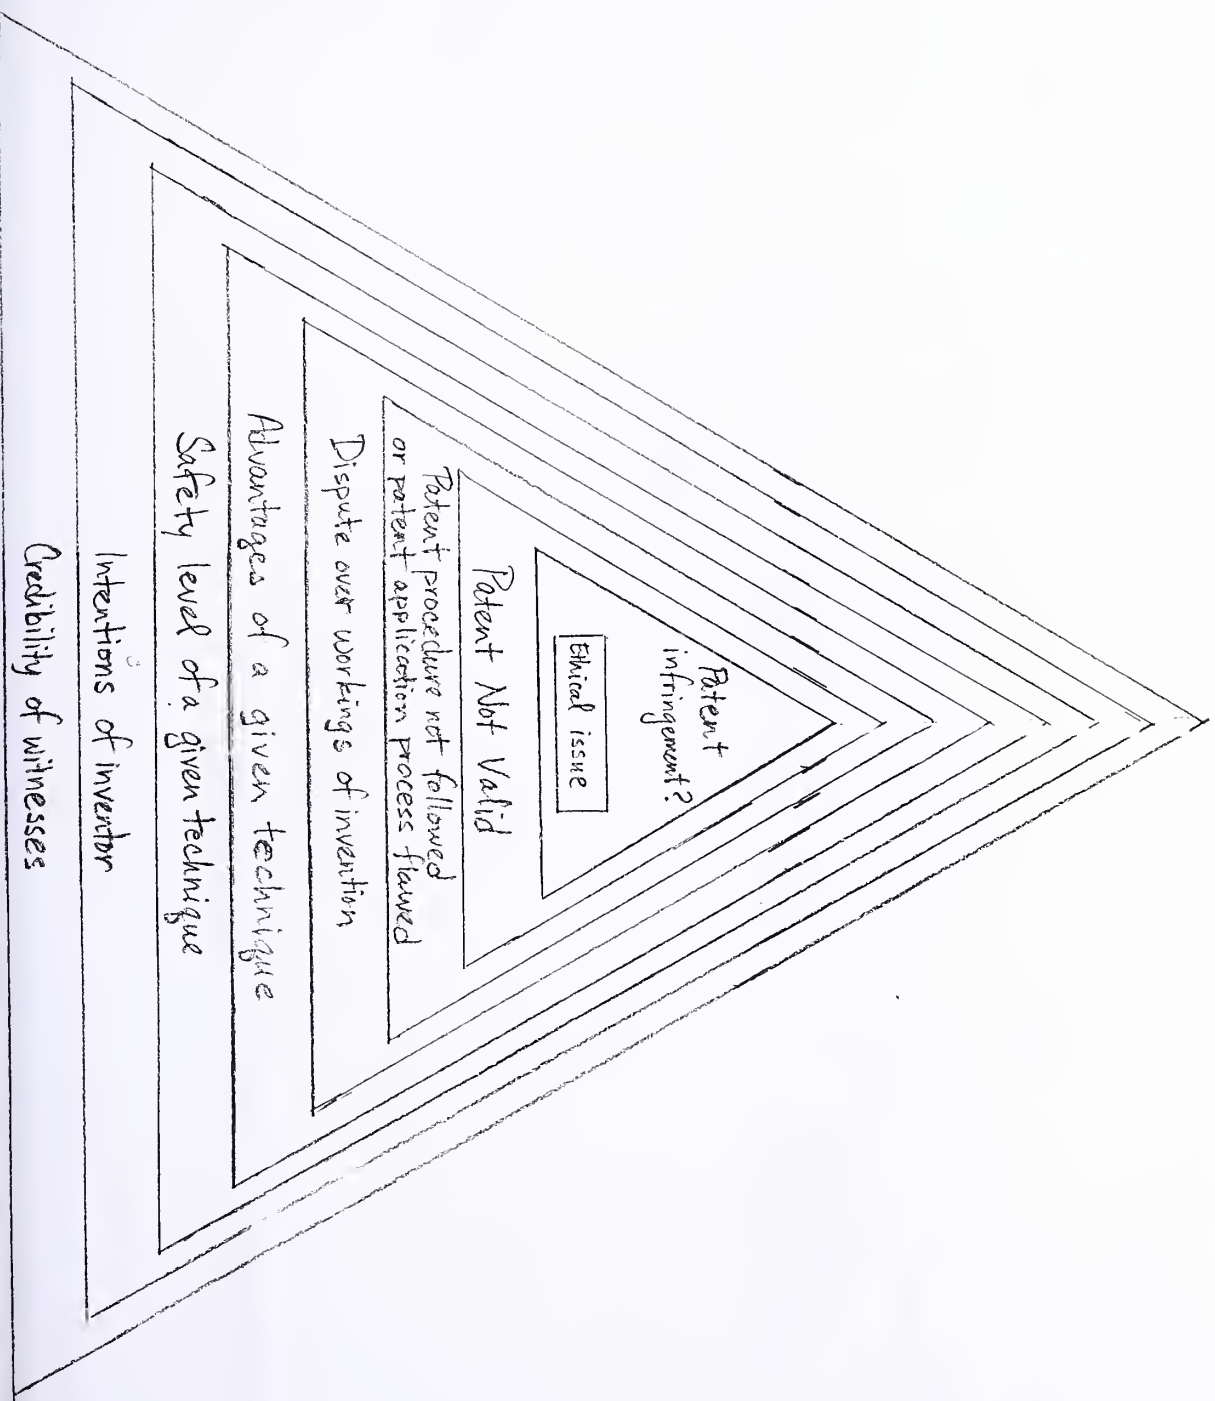 Patent
infringement?
Ethical issue
Patent Not Valid
Patent procedure not followed
or patent application process flawed
Dispute over workings of invention
Advantages of a given technique
Safety level of a given technique
Intentions of inventor
Credibility of witnesses